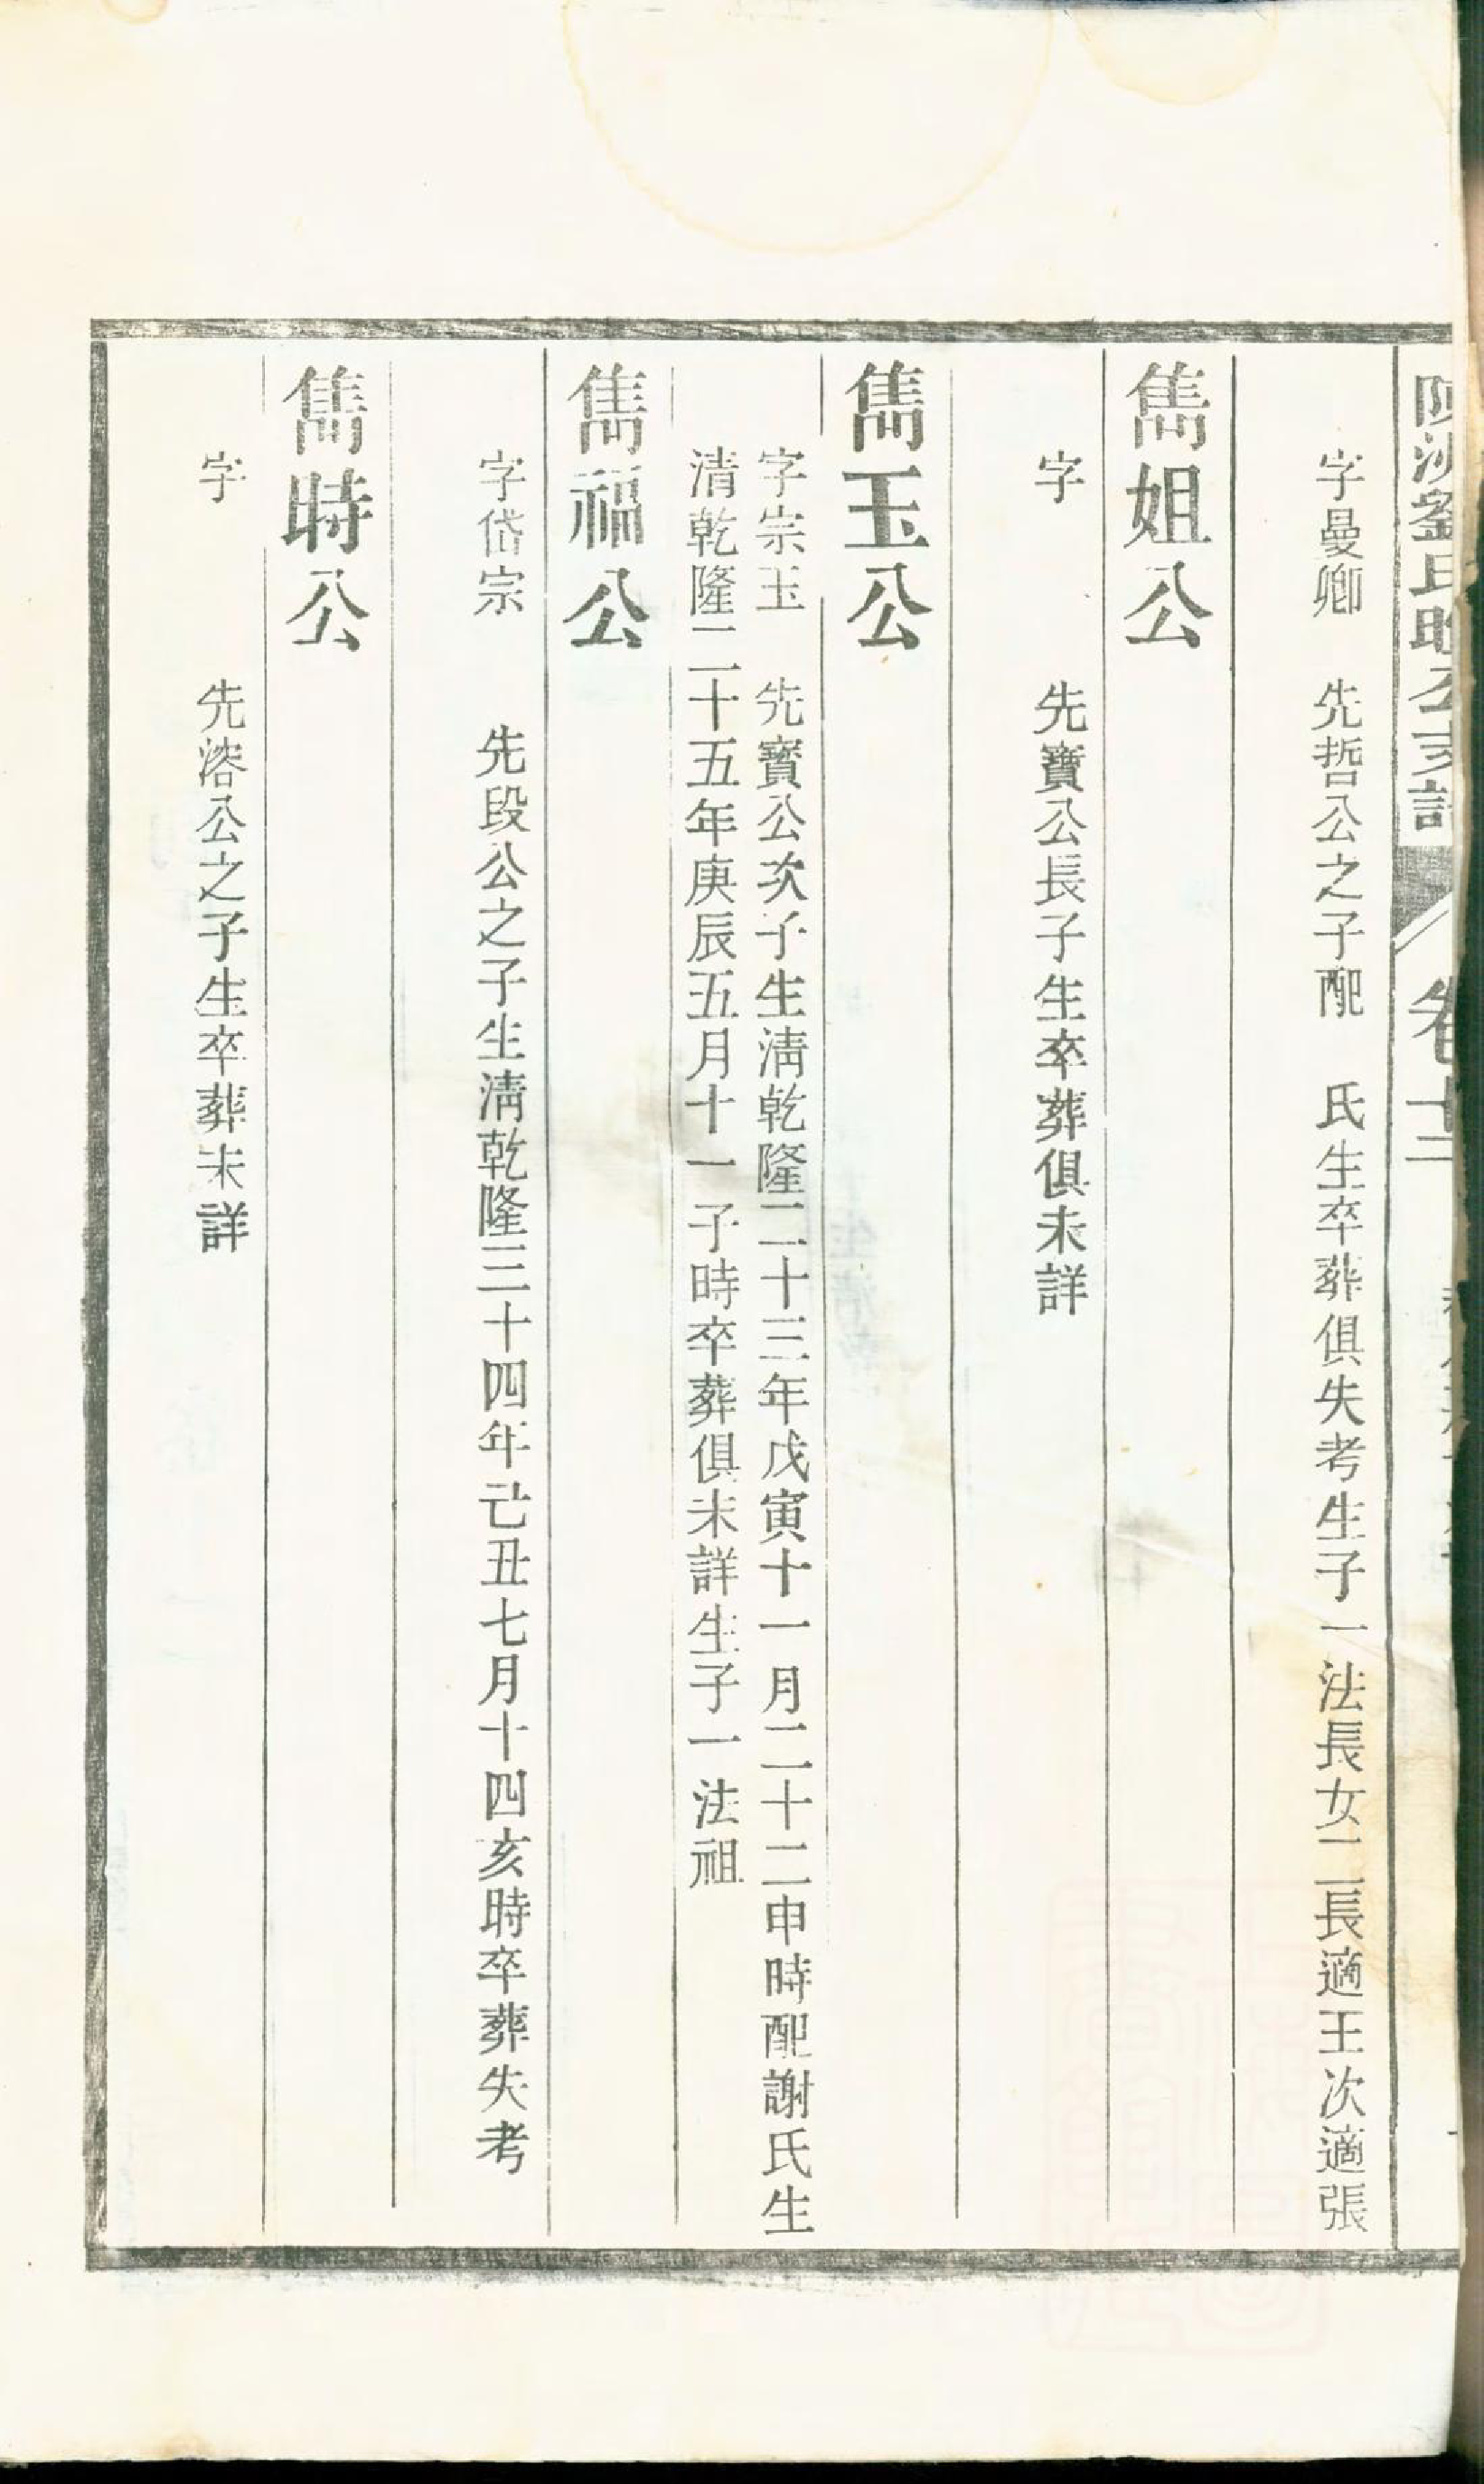 劉氏
卷十二
字曼卿　先哲公之子配　氏生卒葬俱失考生子一法長女二長適王次適張
雋姐公
字　　　先寶公長子生卒葬俱未詳
雋玉公
字宗玉　先寶公次子生清乾隆二十三年戊寅十一月二十二申時配謝氏生
清乾隆二十五年庚辰五月十一子時卒葬俱未詳生子一法祖
雋福公
字岱宗　　先段公之子生清乾隆三十四年己丑七月十四亥時卒葬失考
雋時公
字　　　先溶公之子生卒葬未詳